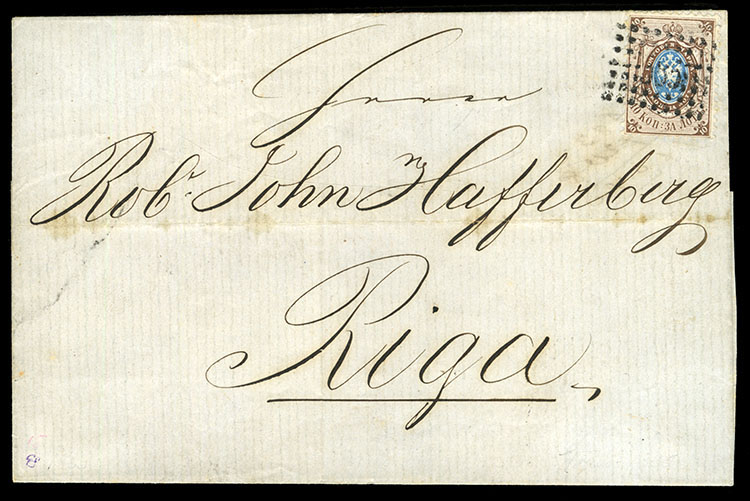 Herrn
Robt. John m/ Hafferberg
Riga
10 КОП: ЗА ЛОТЪ